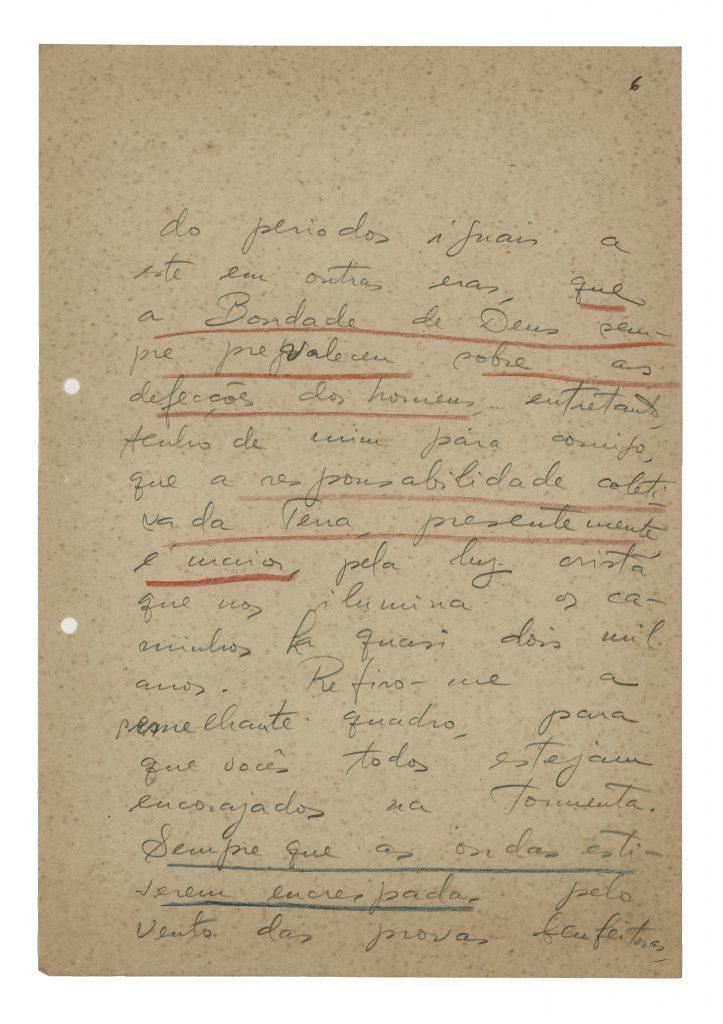 6
do periodos iguais a
este em outras eras, que
a Bondade de Deus sem-
pre prevaleceu sobre as
defecções dos homens, entretanto,
tenho de mim para comigo,
que a responsabilidade coleti-
va da Terra, presentemente,
é maior, pela luz cristã
que nos ilumina os ca-
minhos ha quasi dois mil
anos. Refiro-me a
semelhante quadro, para
que vocês todos estejam
encorajados na tormenta.
Sempre que as ondas esti-
verem encrespadas pelo
vento das provas benfeitoras,